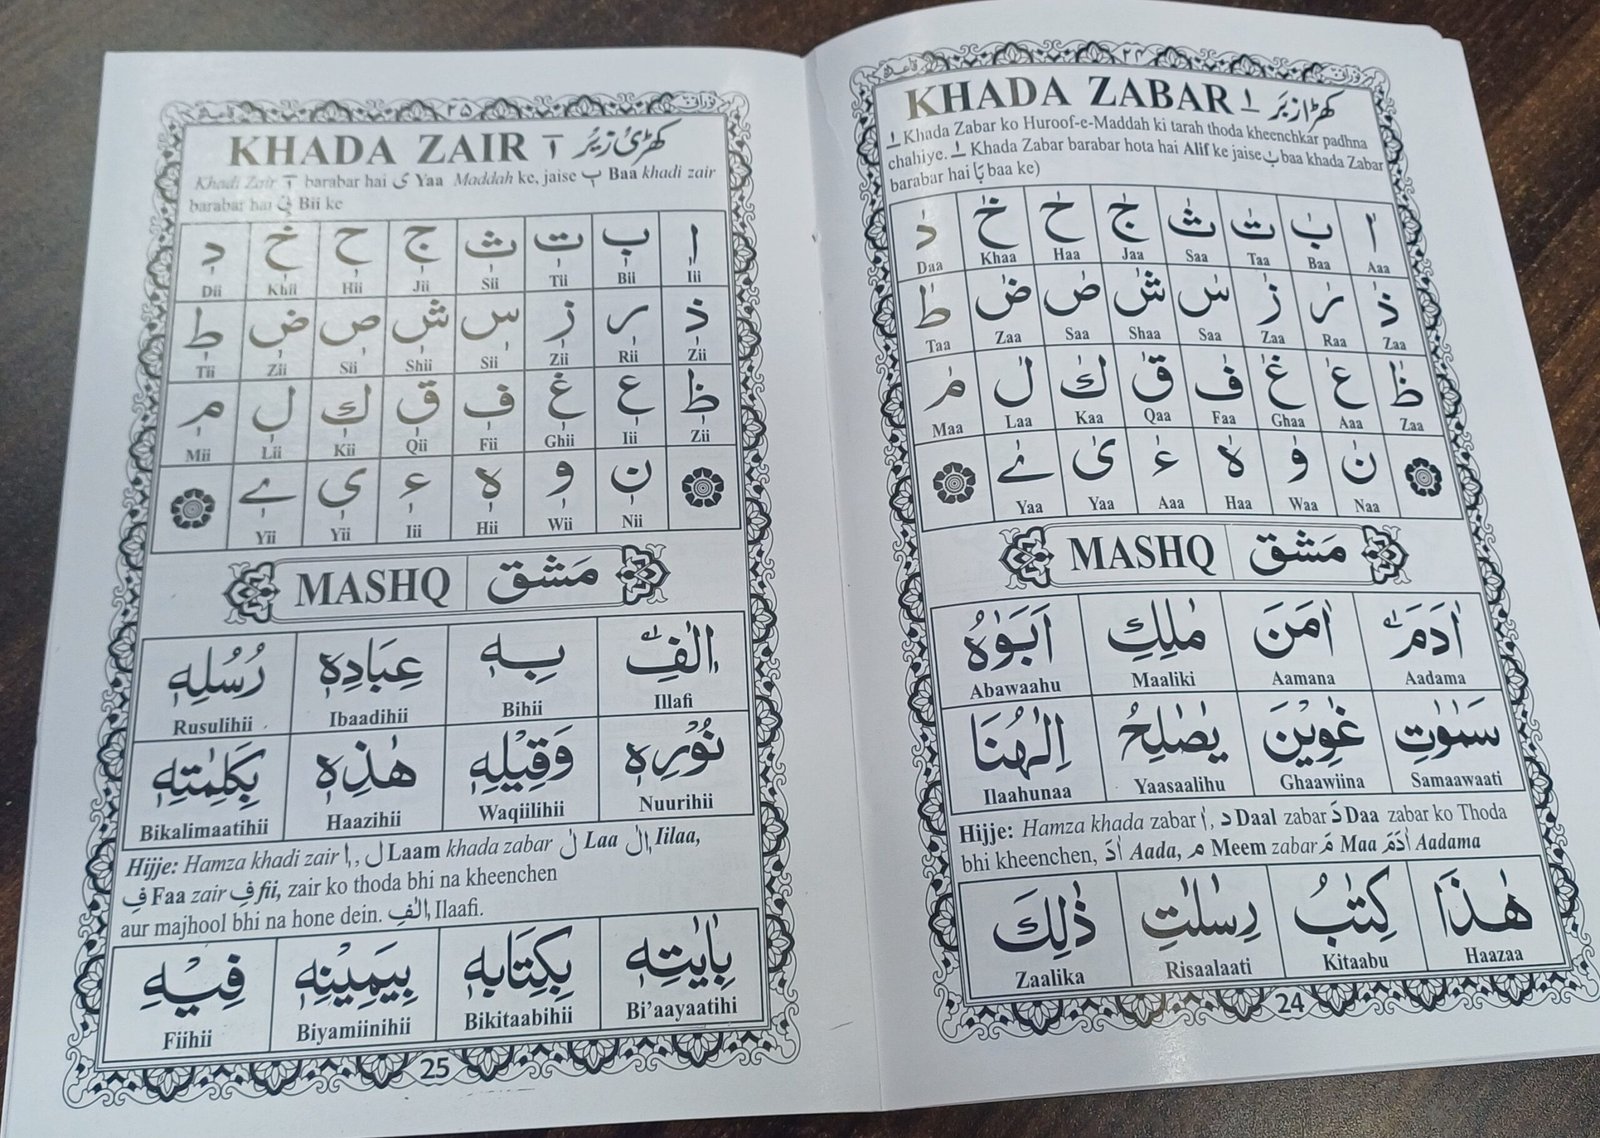 نورانی ۲۴ قاعدہ
KHADA ZABAR ٰا کھڑا زبَر
ٰا Khada Zabar ko Huroof-e-Maddah ki tarah thoda kheenchkar padhna
chahiye. ٰا Khada Zabar barabar hota hai Alif ke jaise بٰ baa khada Zabar
barabar hai بَا baa ke)
اٰ بٰ تٰ ثٰ جٰ حٰ خٰ دٰ
Aaa Baa Taa Saa Jaa Haa Khaa Daa
ذٰ رٰ زٰ سٰ شٰ صٰ ضٰ طٰ
Zaa Raa Zaa Saa Shaa Saa Zaa Taa
ظٰ عٰ غٰ فٰ قٰ كٰ لٰ مٰ
Zaa Aaa Ghaa Faa Qaa Kaa Laa Maa
نٰ وٰ هٰ ءٰ یٰ ےٰ
Naa Waa Haa Aaa Yaa Yaa
MASHQ مَشق
اٰدَمَ اٰمَنَ مٰلِكِ اَبَوٰهُ
Aadama Aamana Maaliki Abawaahu
سَمٰوٰتِ غٰوِيْنَ يٰصٰلِحُ اِلٰهُنَا
Samaawaati Ghaawiina Yaasaalihu Ilaahunaa
Hijje: Hamza khada zabar اٰ, د Daal zabar دَ Daa zabar ko Thoda
bhi kheenchen, اٰدَ Aada, م Meem zabar مَ Maa اٰدَمَ Aadama
هٰذَا كِتٰبُ رِسٰلٰتِ ذٰلِكَ
Haazaa Kitaabu Risaalaati Zaalika
24
نورانی ۲۵ قاعدہ
KHADA ZAIR کھڑی زیر
Khadi Zair barabar hai ی Yaa Maddah ke, jaise بٖ Baa khadi zair
barabar hai بِیْ Bii ke
اٖ بٖ تٖ ثٖ جٖ حٖ خٖ دٖ
Iii Bii Tii Sii Jii Hii Khii Dii
ذٖ رٖ زٖ سٖ شٖ صٖ ضٖ طٖ
Zii Rii Zii Sii Shii Sii Zii Tii
ظٖ عٖ غٖ فٖ قٖ كٖ لٖ مٖ
Zii Iii Ghii Fii Qii Kii Lii Mii
نٖ وٖ هٖ ءٖ یٖ ےٖ
Nii Wii Hii Iii Yii Yii
MASHQ مَشق
اٖلٰفِ بِهٖ عِبَادِهٖ رُسُلِهٖ
Illafi Bihii Ibaadihii Rusulihii
نُوْرِهٖ وَقِيْلِهٖ هٰذِهٖ بِكَلِمٰتِهٖ
Nuurihii Waqiilihii Haazihii Bikalimaatihii
Hijje: Hamza khadi zair اٖ, ل Laam khada zabar لٰ Laa اٖلٰ, Iilaa,
فِ Faa zair فِ fii, zair ko thoda bhi na kheenchen
aur majhool bhi na hone dein. اٖلٰفِ Ilaafi.
بِاٰيٰتِهٖ بِكِتَابِهٖ بِيَمِيْنِهٖ فِيْهِ
Bi’aayaatihi Bikitaabihii Biyamiinihii Fiihii
25